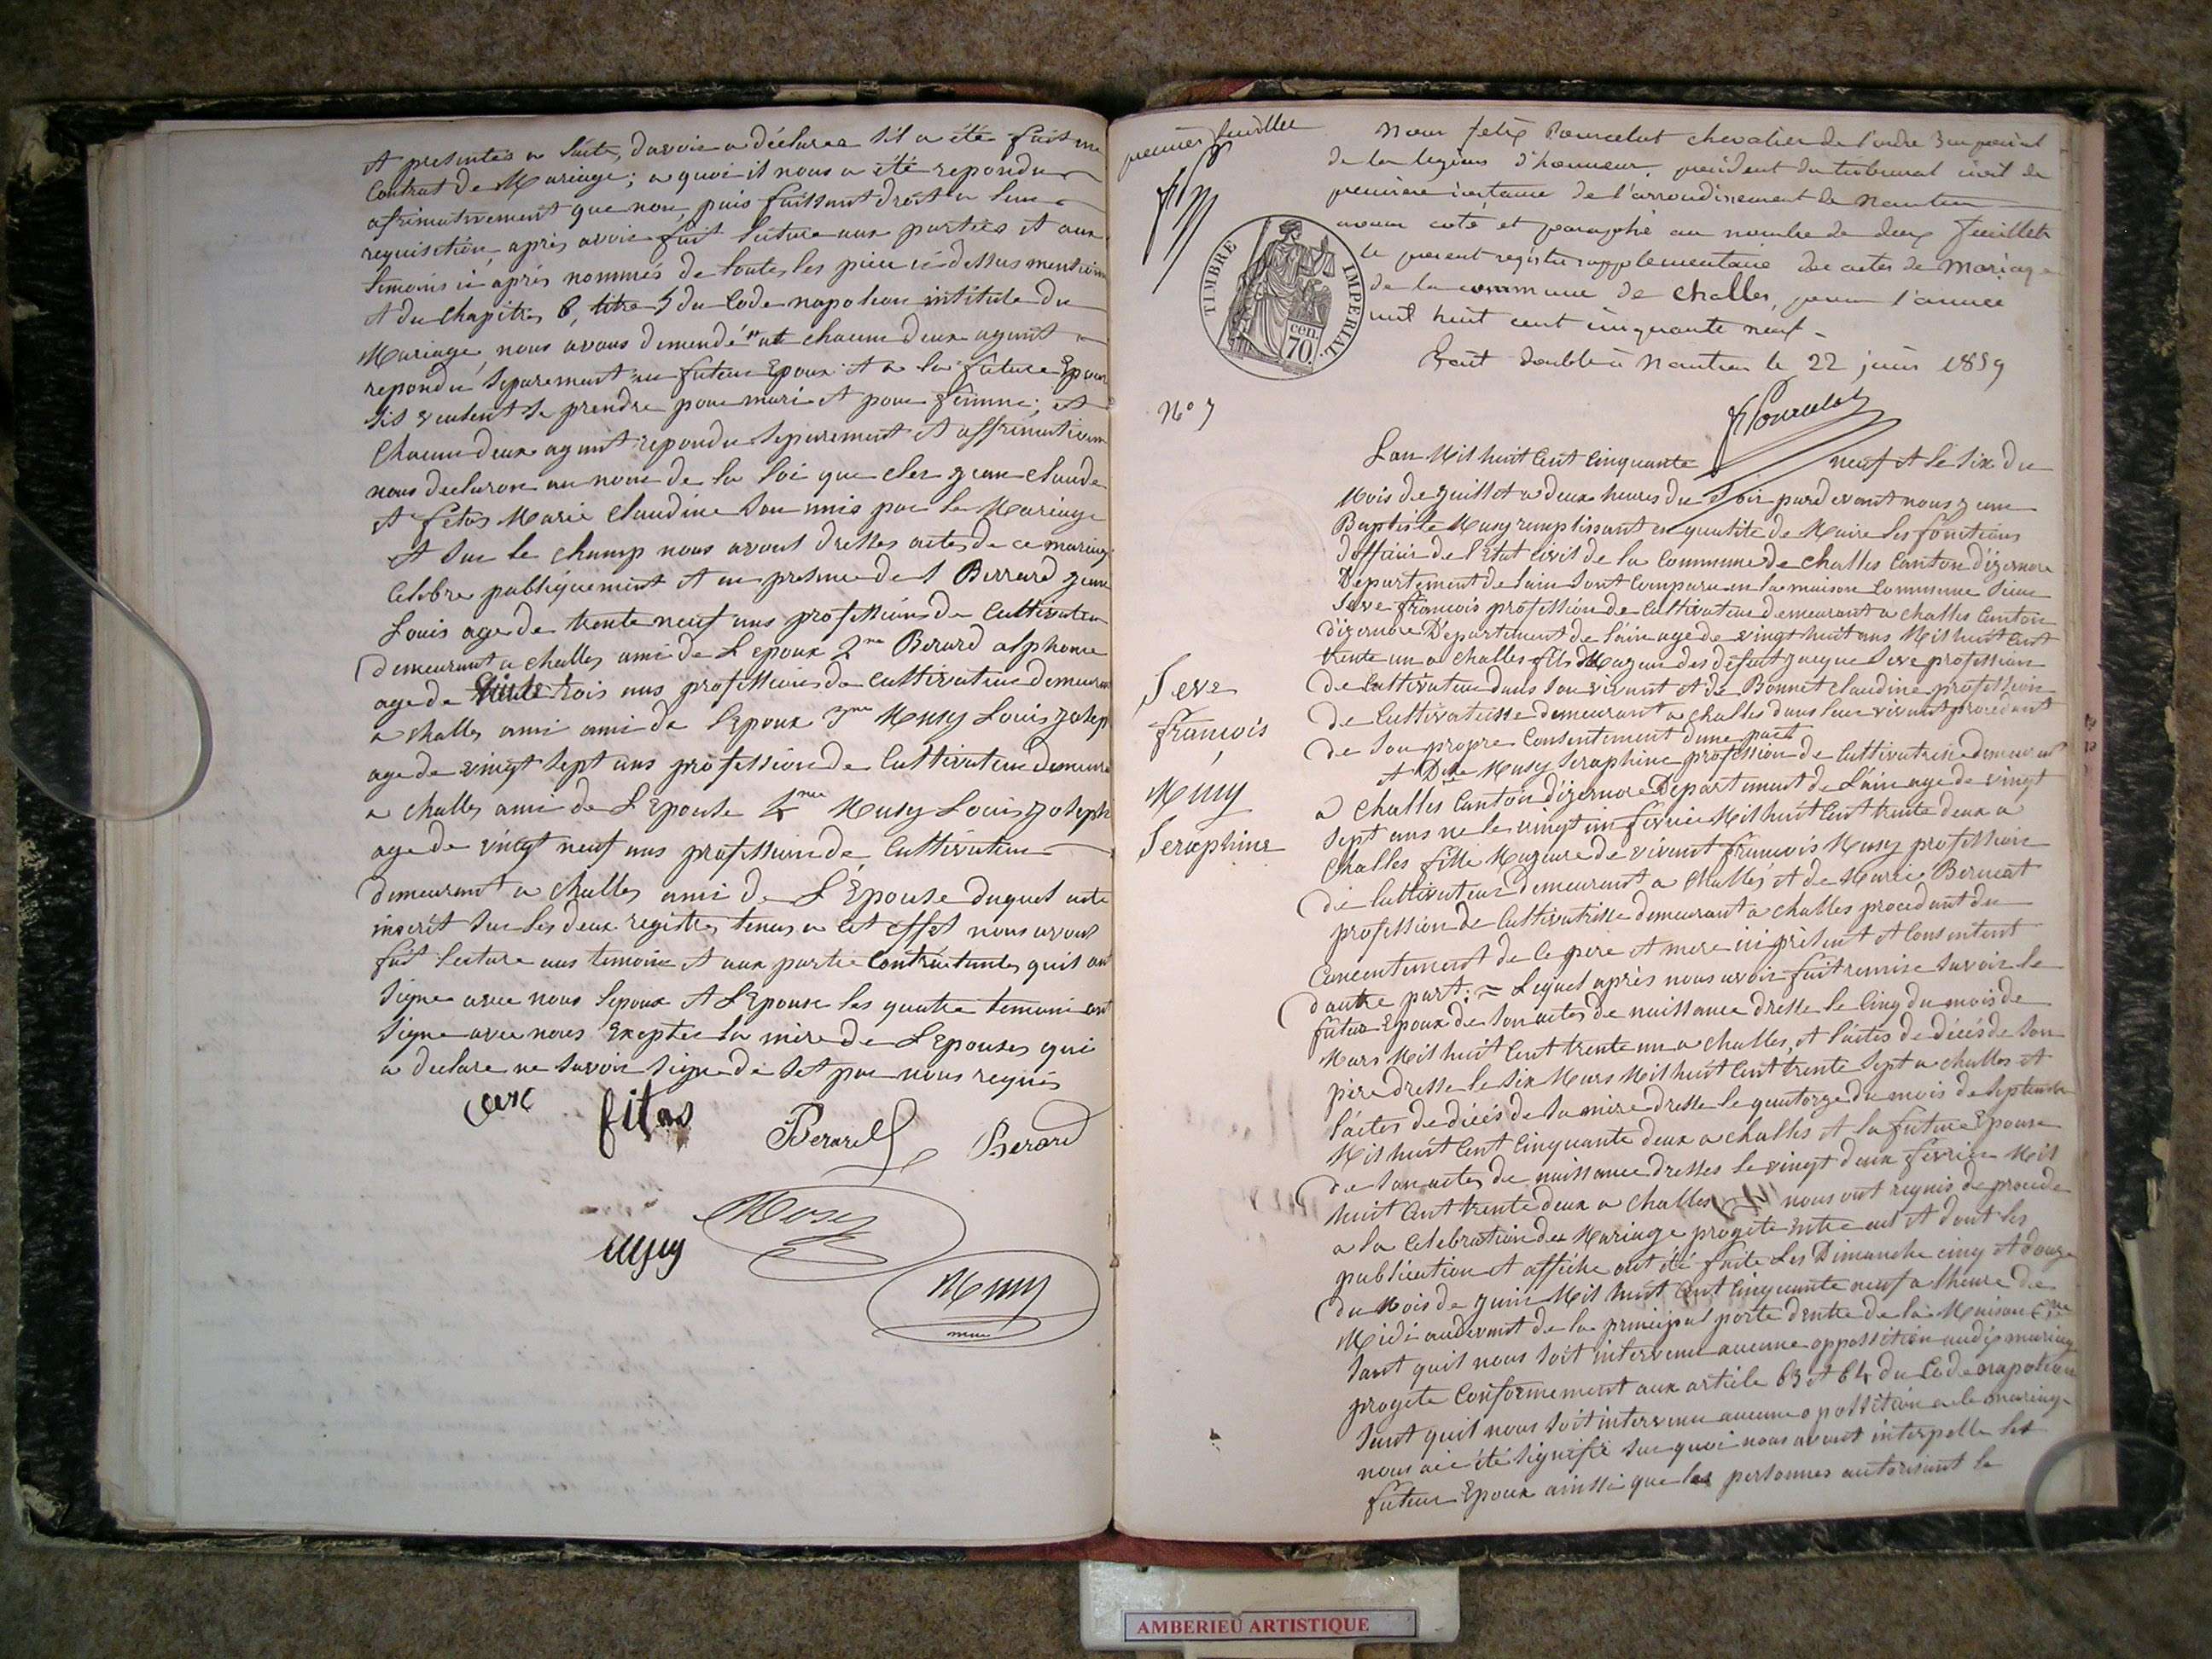 et presentes a suite, davoir a déclarer s'il a été fait un
Contrat de Mariage; a quoi il nous a été repondu
afirmativement que non, puis faissant droit a leur
requisition, après avoir fait lecture aux parties et aux
temoins ci après nommés de toutes les pieces ci dessus mention
et du Chapitre 6, titre 5 du Code napoleon intitule du
Mariage, nous avons demendé et chacun deux ayant
repondu separement au futeur Epoux et a la future Epouse
sils veulent se prendre pour mari et pour femme; et
Chacun deux ayant repondu separement et affirmativem
nous declaron au nom de la loi que cler jean claude
et fétas Marie claudine son unis par le Mariage
et sur le champ nous avons dresses actes de ce mariage
Celebre publiquement et en presence de 1 Berrard jean
Louis age de trente neuf ans professions de Cultivateur
demeurant a challes ami de L epoux 2me Berard alphonse
age de trois ans professions de cultivateur demeurant
a challes ami ami de l'Epoux 3me Musy Louis joseph
age de vingt sept ans profession de Cultivateur demeura
a challes ami de L'Epouse 4me Musy Louis joseph
age de vingt neuf ans profession de Cultivateur
demeurant a challes ami de L'Epouse duquel acte
inscrit sur les deux registres tenus a cet effet nous avons
fait lecture aus temoins et aux partie contractantes quil ont
signe avec nous lepoux et L'Epouse les quatre temoins ont
signe avec nous Exeptee la mere de L'Epouses qui
a declare ne savoir signe de set par nous requis
fitas Berard Berard
Musy
Musy
Musy
premier feuillet
Nous felix Pourcelot chevalier de l'ordre Imperial
de la legions d'honneur, president du tribunal civil de
premiere instance de l'arrondissement de Nantua
avons coté et paraphé au nombre de deux feuillets
le present registre supplementaire des actes de Mariage
de la commune de Challes, pour l'année
mil huit cent cinquante neuf -
Fait double à Nantua le 22 juin 1859
TIMBRE IMPERIAL
70 cen.
F Pourcelot
No 7
Lan Mil huit Cent Cinquante neuf et le six du
Mois de juillet a deux heures du soir pardevant nous jean
Baptiste Musy remplissant en qualité de Maire les fonctions
dofficier de l'Etat Civil de la Commune de challes Canton d'izernore
Departement de lain sont Comparu en la maison Commune sieur
Seve françois profession de Cultivateur demeurant a challes Canton
dizernore Departement de lain age de vingt huit ans Mil huit Cent
trente un a challes fils Majeur des défunt jacque Seve profession
de Cultivateur dans son vivant et de Bonnet claudine profession
de Cultivatrisse demeurant a challes dans leur vivant procedant
de son propre Consentement dune part
et Dlle Musy Seraphine profession de Cultivatrise demeurant
a challes Canton dizernore Departement de Lain age de vingt
sept ans ne le vingt un fevrier Mil huit Cent trente deux a
Challes fille Majeure de vivant françois Musy profession
de Cultivateur demeurant a challes et de Marie Bernat
profession de Cultivatrisse demeurant a challes procedant du
Concentement de ce pere et mere ici présent et Consentent
dautre part: = Lequel après nous avoir fait remise savoir le
futur Epoux de son actes de naissance dresse le Cinq du mois de
Mars Mil huit Cent trente un a challes, et l'actes de décés de son
père dresse le six Mars Mil huit Cent trente sept a challes et
l'actes de décés de sa mère dresse le quatorze du mois de septembre
Mil huit Cent Cinquante deux a challes et la future Epouse
de son actes de naissance dresses le vingt deux fevrier Mil
huit Cent trente deux a challes nous ont requis de procede
a la Celebration des Mariage progete entre eux et dont les
publication et affiche ont été faite les Dimanche cinq et douze
du Mois de juin Mil huit Cent Cinquante neuf a lheure de
Midi audevant de la principal porte dentre de la Maison Cne
sant quil nous soit intervenu aucune oppossition audis mariage
progete Conformement aux article 63 et 64 du Code napoleon
sant quil nous soit intervenu aucune opossition a le mariage
nous aie été signifié sur quoi nous avont interpelle les
futeur Epoux ainssi que les personnes autorisant le
Seve
françois
Musy
Seraphine
AMBERIEU ARTISTIQUE